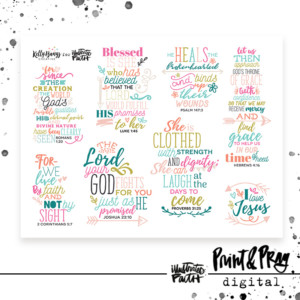 For
since
the
CREATION
OF THE WORLD
God's
DIVINE NATURE
have been CLEARLY
SEEN
ROMANS
1:20
Blessed
is she
who has
BELIEVED
THAT THE
LORD
his
PROMISES
to her
LUKE 1:45
HE HEALS
THE
Brokenhearted
and binds
up their
wounds
PSALM 147:3
let us
then
APPROACH
GOD'S THRONE
OF GRACE
with
CONFIDENCE
SO THAT WE MAY
RECEIVE mercy
AND
find
grace
TO HELP US
IN OUR
time of
need
HEBREWS 4:16
FOR
WE
live
by
faith
AND
NOT
BY
SIGHT
2 CORINTHIANS 5:7
THE
Lord
your
GOD
FIGHTS
FOR YOU
just as
he
promised
JOSHUA 23:10
She is
CLOTHED
with STRENGTH
AND
dignity;
She CAN
LAUGH at
the
DAYS TO
come
PROVERBS 31:25
I
love
Jesus
illustrated
FAITH
Print & Pray
digital